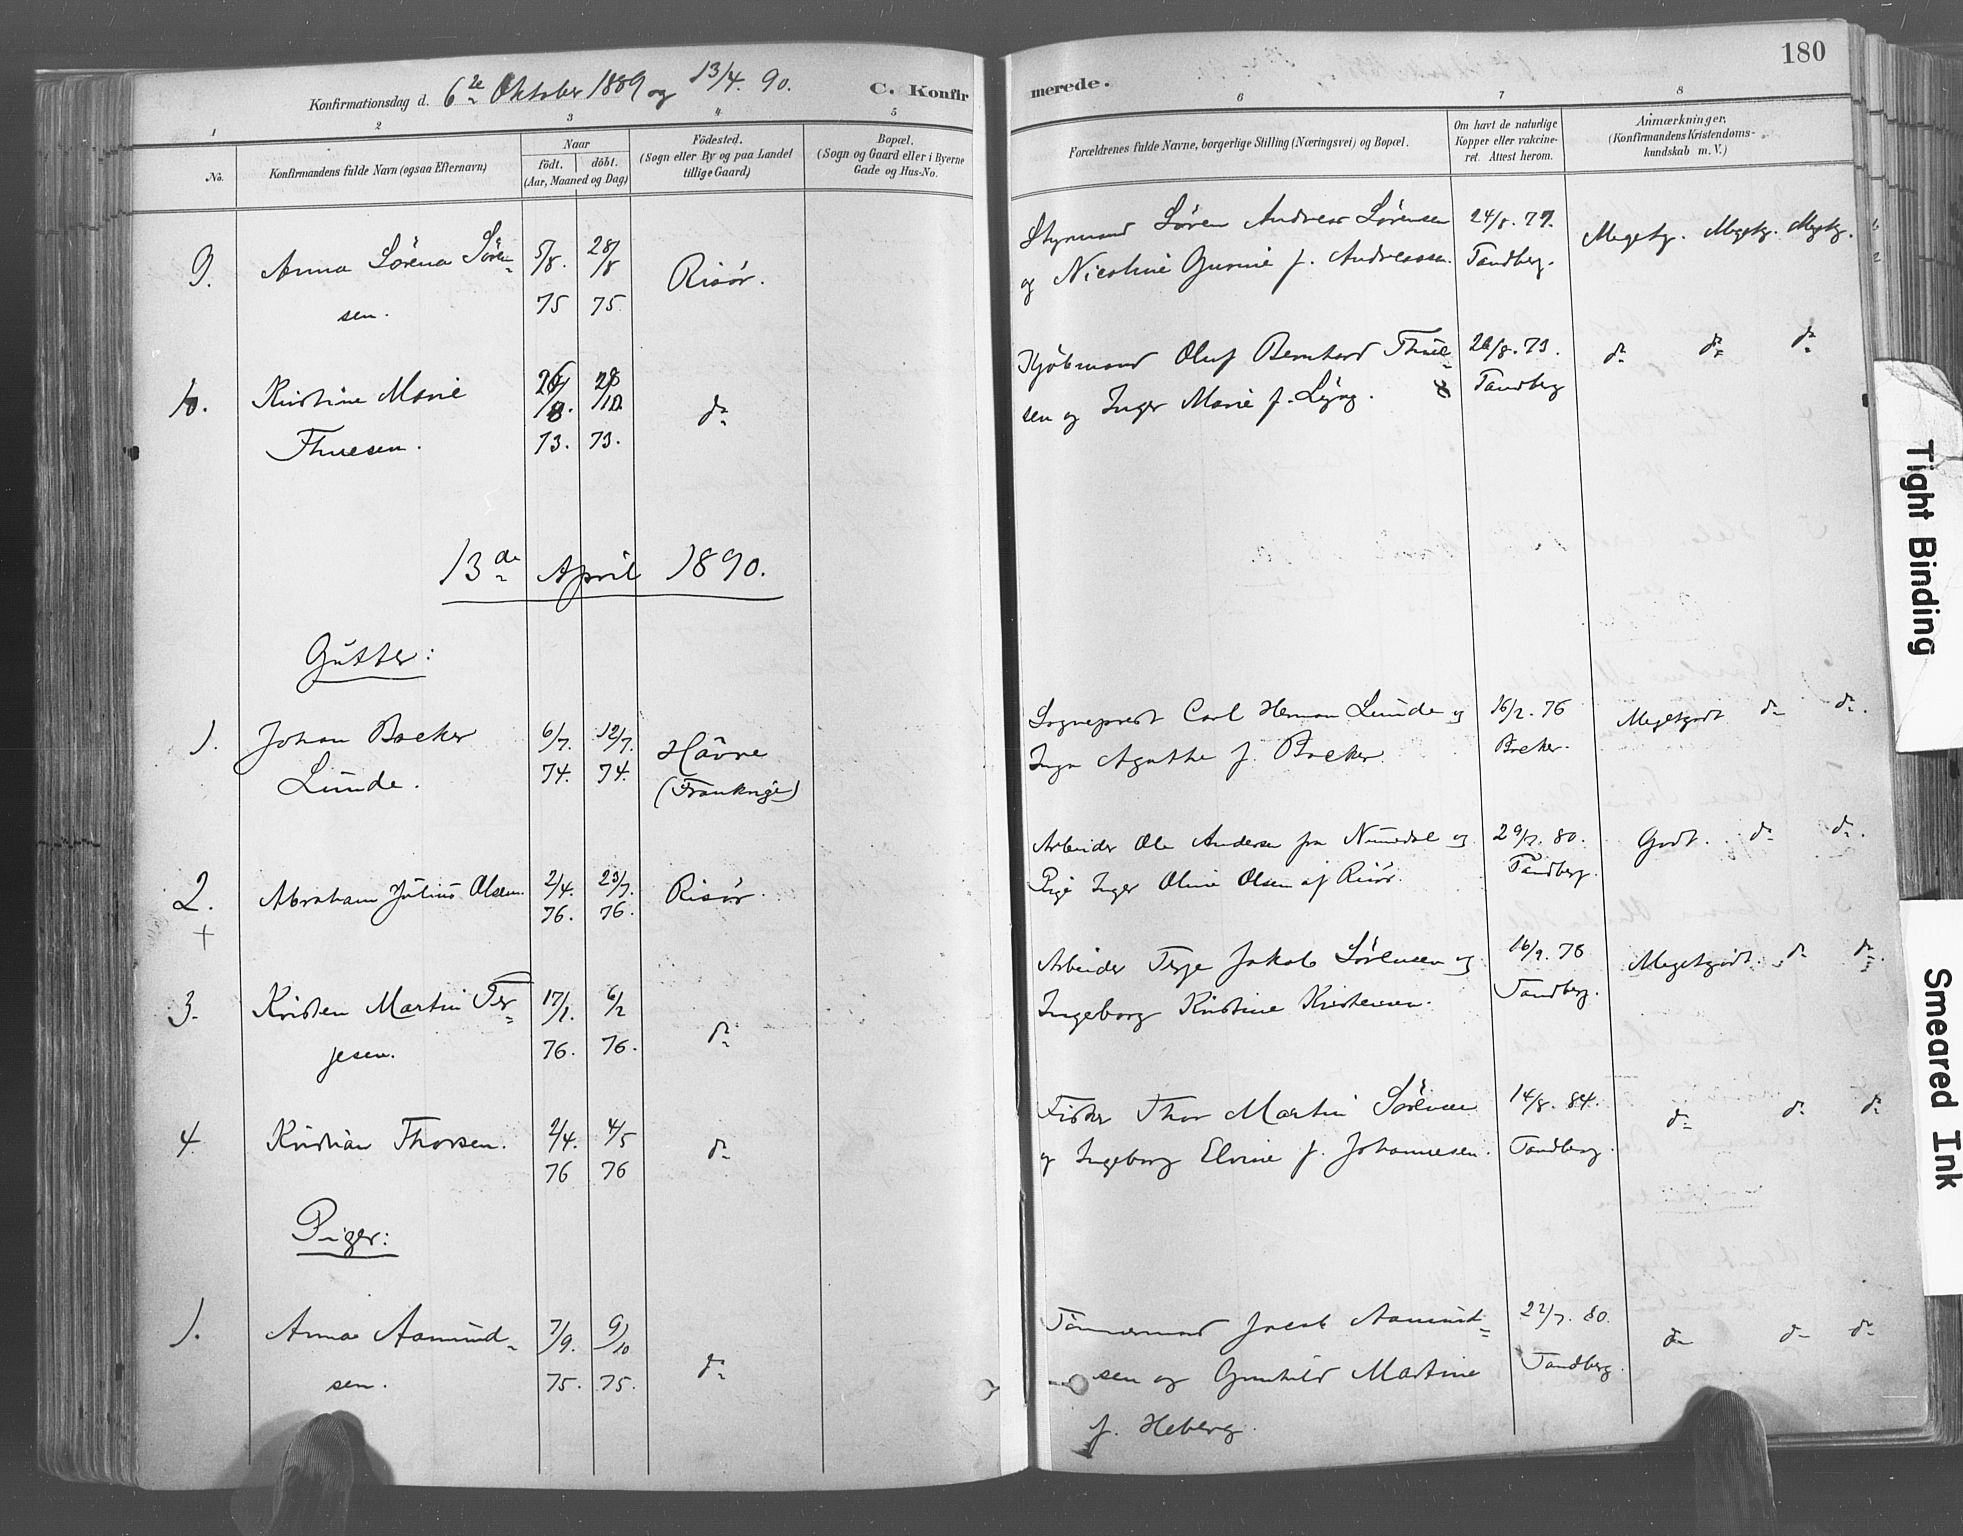 180
Konfirmationsdag d. 6te Oktober 1889 og 13/4. 90.
C. Konfirmerede.
1 2 3 4 5 6 7 8
No.
Konfirmandens fulde Navn (ogsaa Efternavn)
Naar
født. døbt.
(Aar, Maaned og Dag)
Fødested.
(Sogn eller By og paa Landet
tillige Gaard)
Bopæl.
(Sogn og Gaard eller i Byerne
Gade og Hus-No.
Forældrenes fulde Navne, borgerlige Stilling (Næringsvei) og Bopæl.
Om havt de naturlige
Kopper eller vakcine-
ret. Attest herom.
Anmærkninger,
(Konfirmandens Kristendoms-
kundskab m. V.)
9. Anna Sørena Søren- 5/8. 28/8 Risør.
sen. 75 75
Styrmand Søren Andreas Sørensen 24/8. 77.
og Nicoline Gurine f. Andreassen. Tandberg.
Megetg. Megetg. Megetg.
10. Kristine Marie 26/8. 28/10 do
Thuesen. 73. 73.
Kjøbmand Oluf Bernhard Thue- 26/8. 73.
sen og Inger Marie f. Lyng. Tandberg
do do do
13de April 1890.
Gutter:
1. Johan Backer 6/7. 12/7. Håvre
Lunde. 74. 74. (Frankrige)
Sogneprest Carl Herman Lunde og 16/2. 76
Inga Agathe f. Backer. Backer.
Megetgodt do do.
2. Abraham Julius Olsen. 2/4. 23/7. Risør.
+ 76. 76.
Arbeider Ole Andersen fra Numedal og 29/7. 80.
Pige Inger Oline Olsen af Risør. Tandberg.
Godt. do do.
3. Kristen Martin Ter- 17/1. 6/2 do
jesen. 76. 76.
Arbeider Terje Jakob Sørensen og 16/9. 76
Ingeborg Kristine Kristensen. Tandberg.
Megetgodt. do do
4. Kristian Thorsen. 2/4. 4/5 do
76 76
Fisker Thor Martin Sørensen 14/8. 84.
og Ingeborg Elvine f. Johannesen. Tandberg.
do do do
Piger:
1. Anna Aamund- 7/9. 9/10 do
sen. 75. 75.
Tømmermand Jacob Aamund- 22/7. 80.
sen og Gunhild Martine Tandberg.
f. Heberg.
do do do
Tight Binding
Smeared Ink